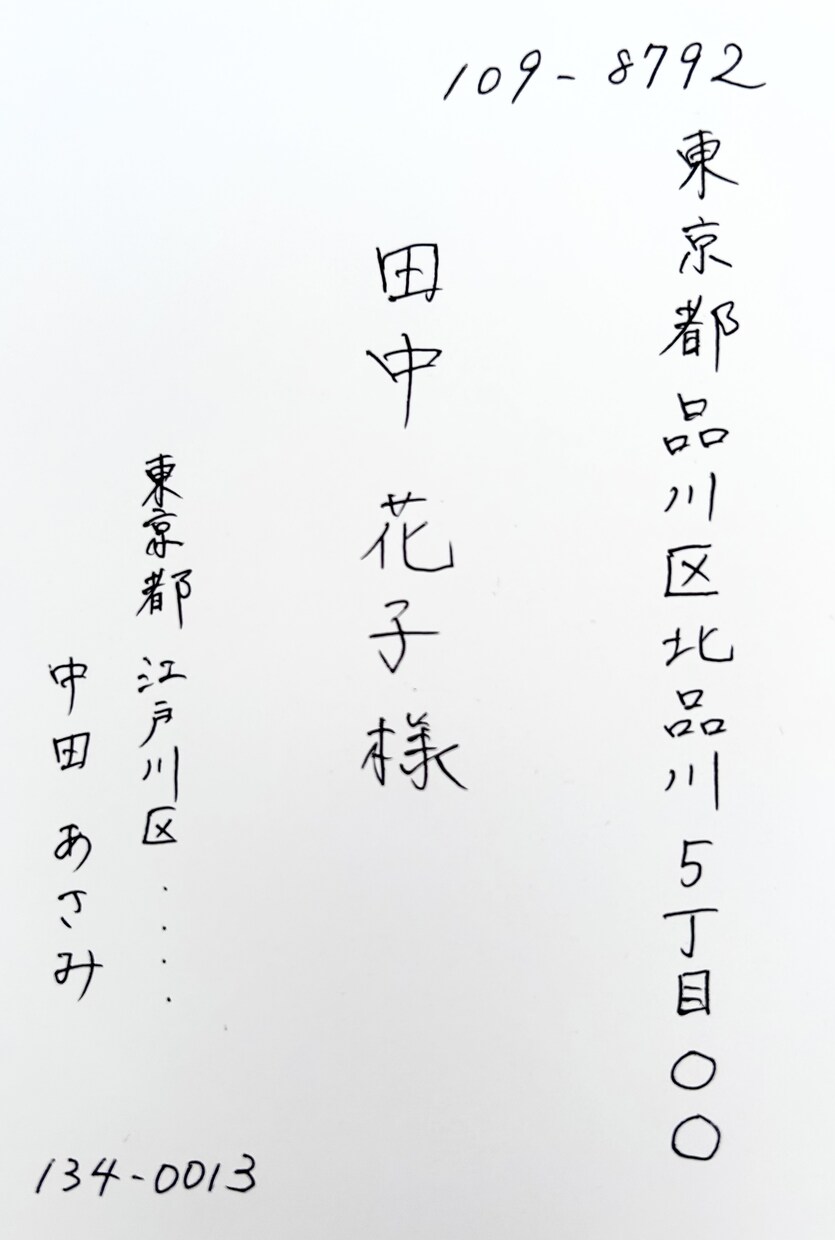 109-8792
東京都品川区北品川5丁目〇〇
田中 花子様
東京都 江戸川区....
中田 あさみ
134-0013